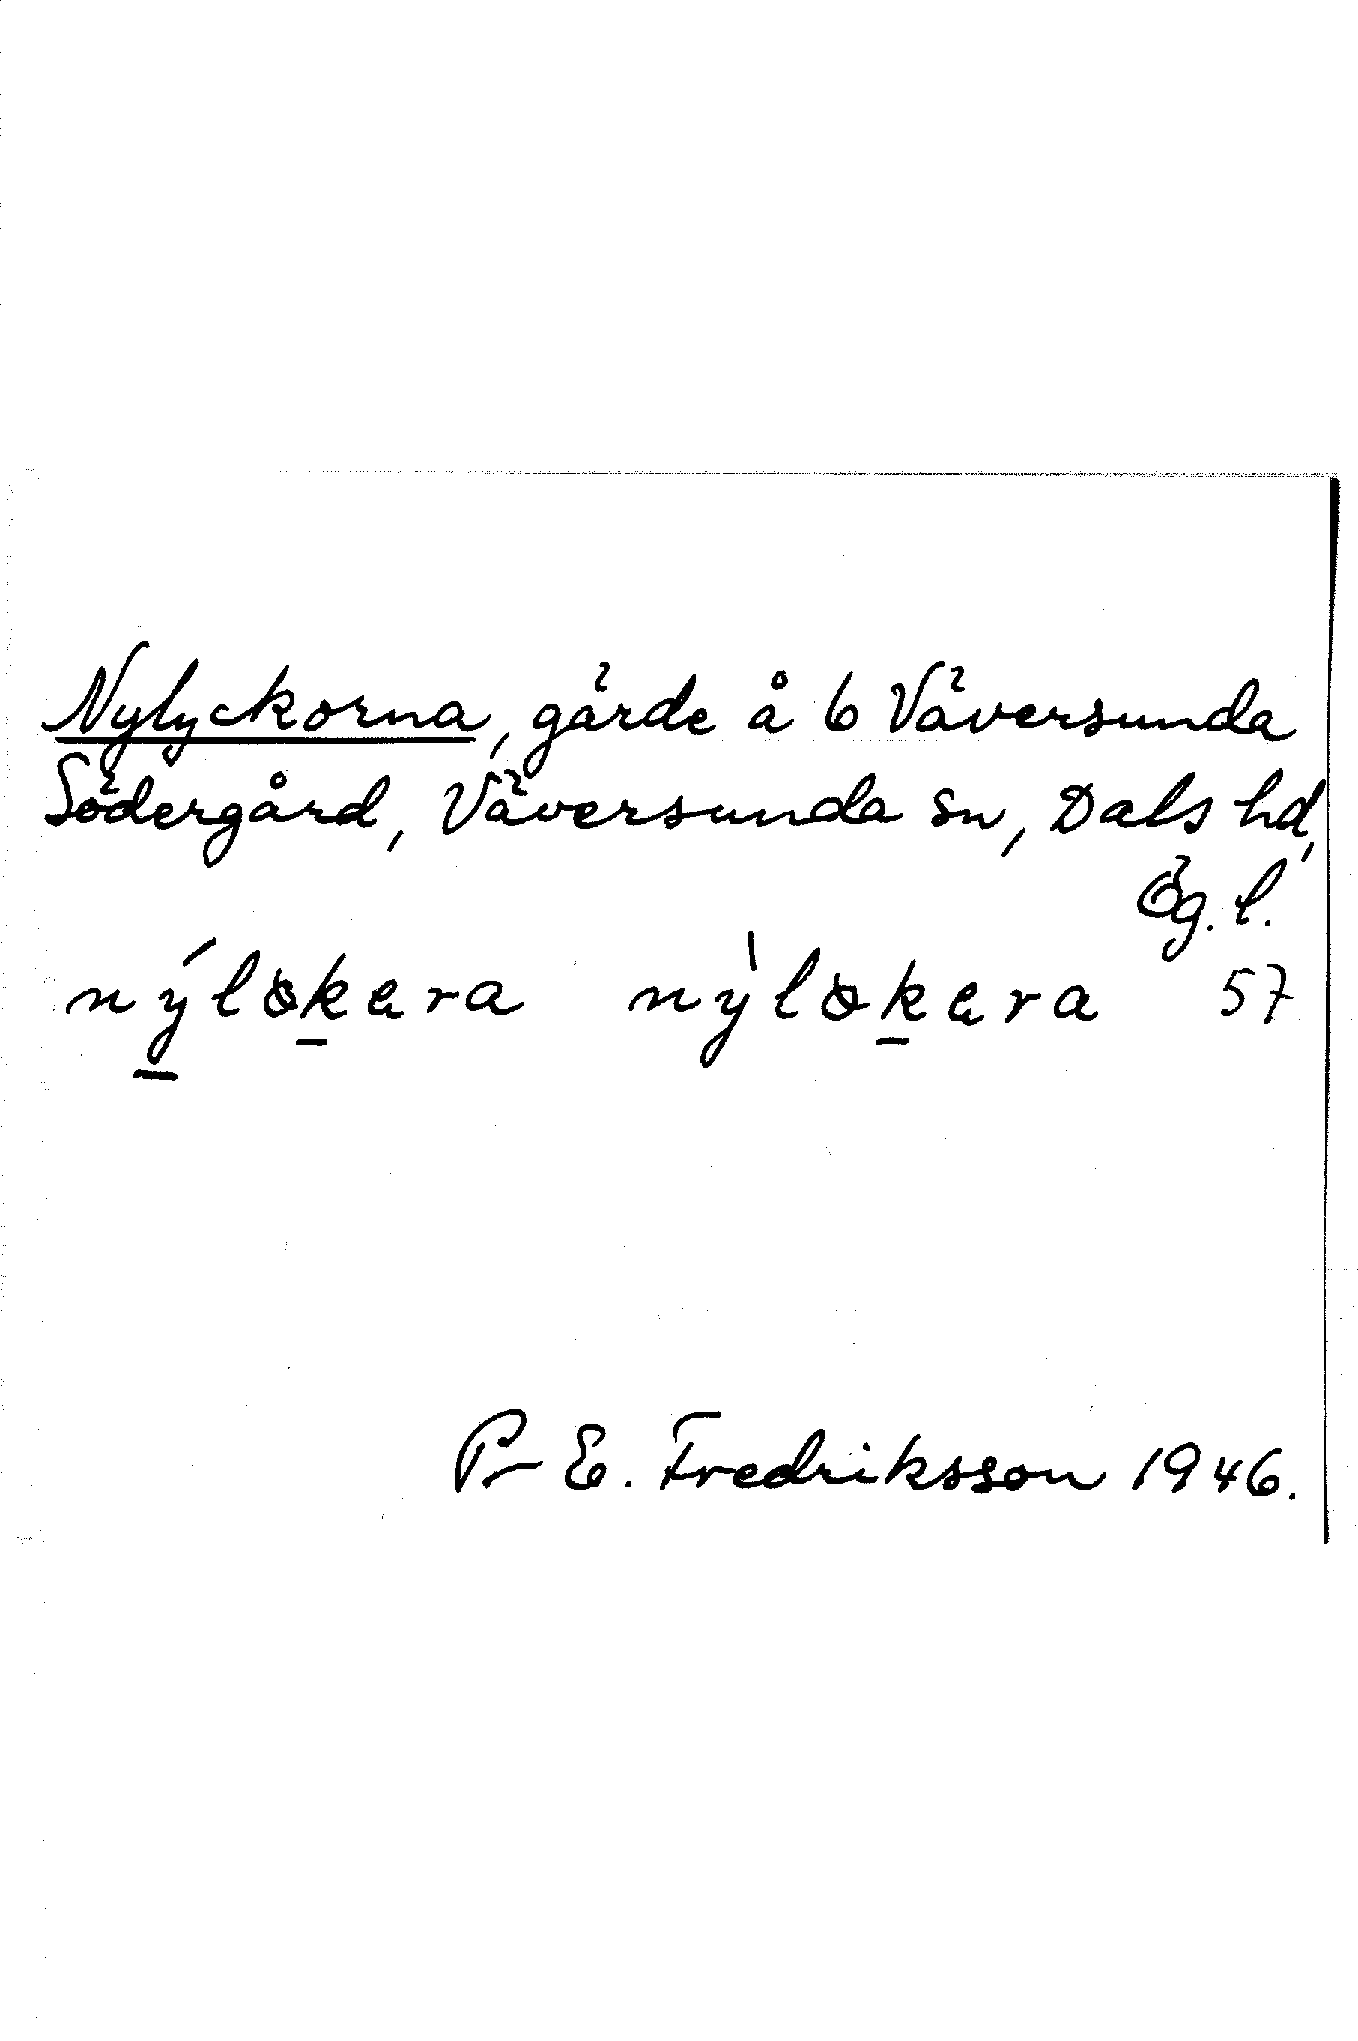 Nylyckorna, gärde å 6 Väversunda
Södergård, Väversunda sn, Dals hd,
Ög. l.
nýløkɐra nỳløkɐra 57
P-E. Fredriksson 1946.